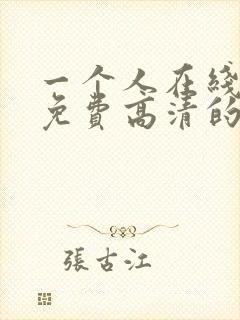 一个人在线
免费高清的
張古江